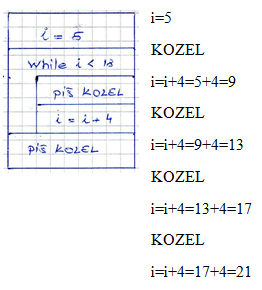 i = 5
while i < 18
piš KOZEL
i = i + 4
piš KOZEL
i=5
KOZEL
i=i+4=5+4=9
KOZEL
i=i+4=9+4=13
KOZEL
i=i+4=13+4=17
KOZEL
i=i+4=17+4=21